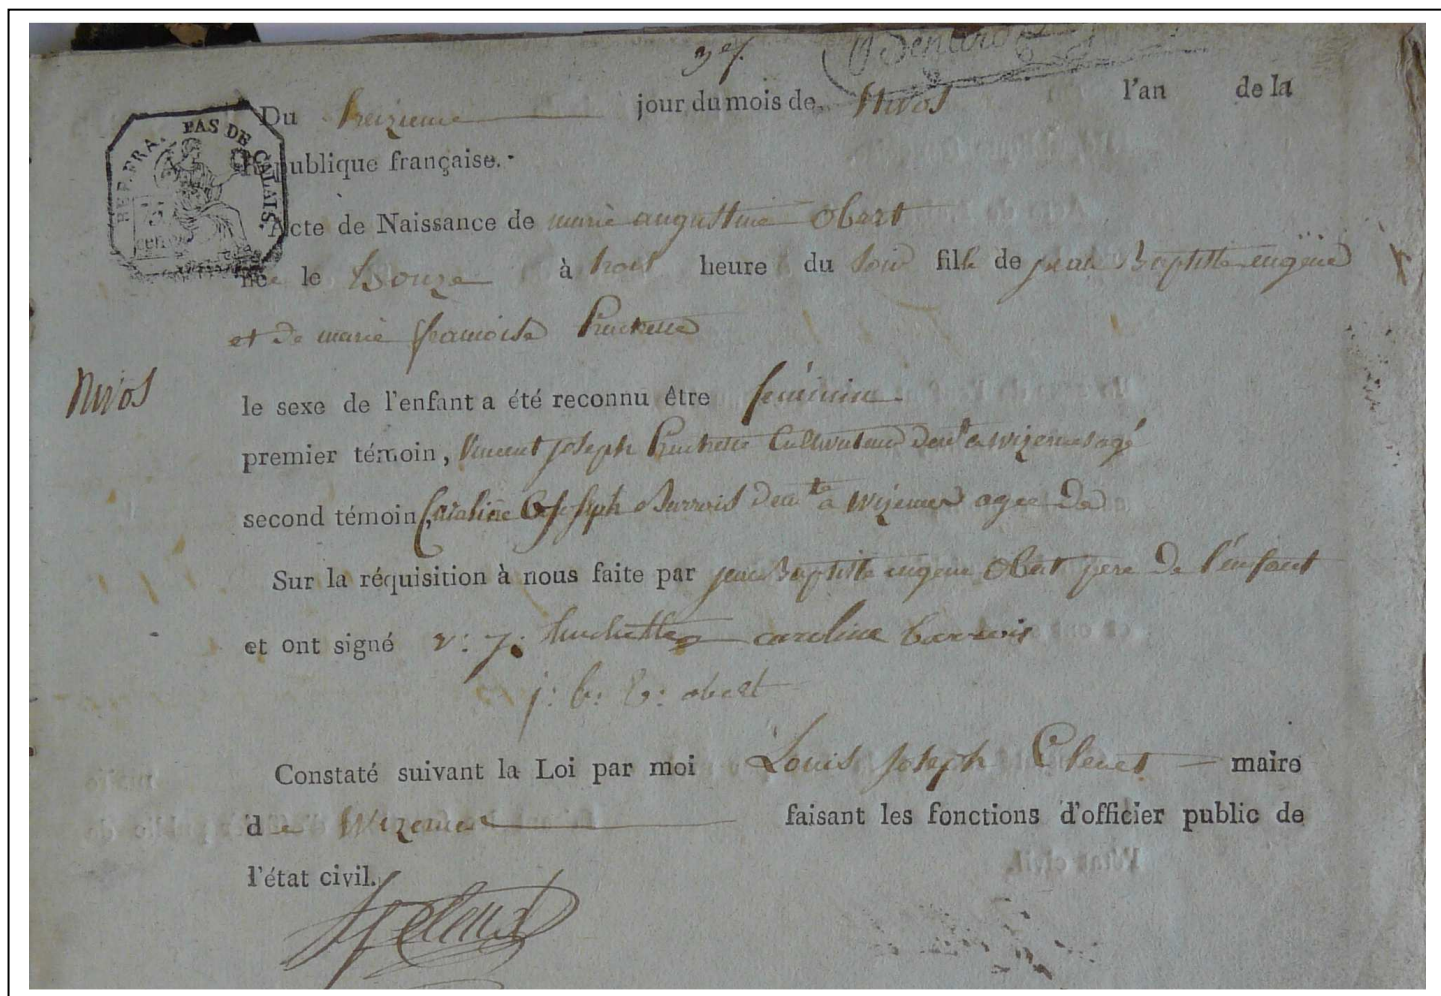 3e/.
Du treizieme jour du mois de Nivos l'an de la
REP. FRA. PAS DE CALAIS.
75
République française.
Acte de Naissance de marie augustine obert
née le Douze à trois heure du soir fille de jean Baptiste eugene
et de marie francoise huchette
Nivos
le sexe de l'enfant a été reconnu être feminin
premier témoin, Vincent joseph huchette Cultivateur demt a wizernes agé
second témoin, Caroline joseph Barrois demte a wizernes agee de
Sur la réquisition à nous faite par jean Baptiste eugene obert pere De l'enfant
et ont signé v: j: huchette caroline barrois
j: b: E: obert
Constaté suivant la Loi par moi Louis joseph Clenet maire
de Wizernes faisant les fonctions d'officier public de
l'état civil.